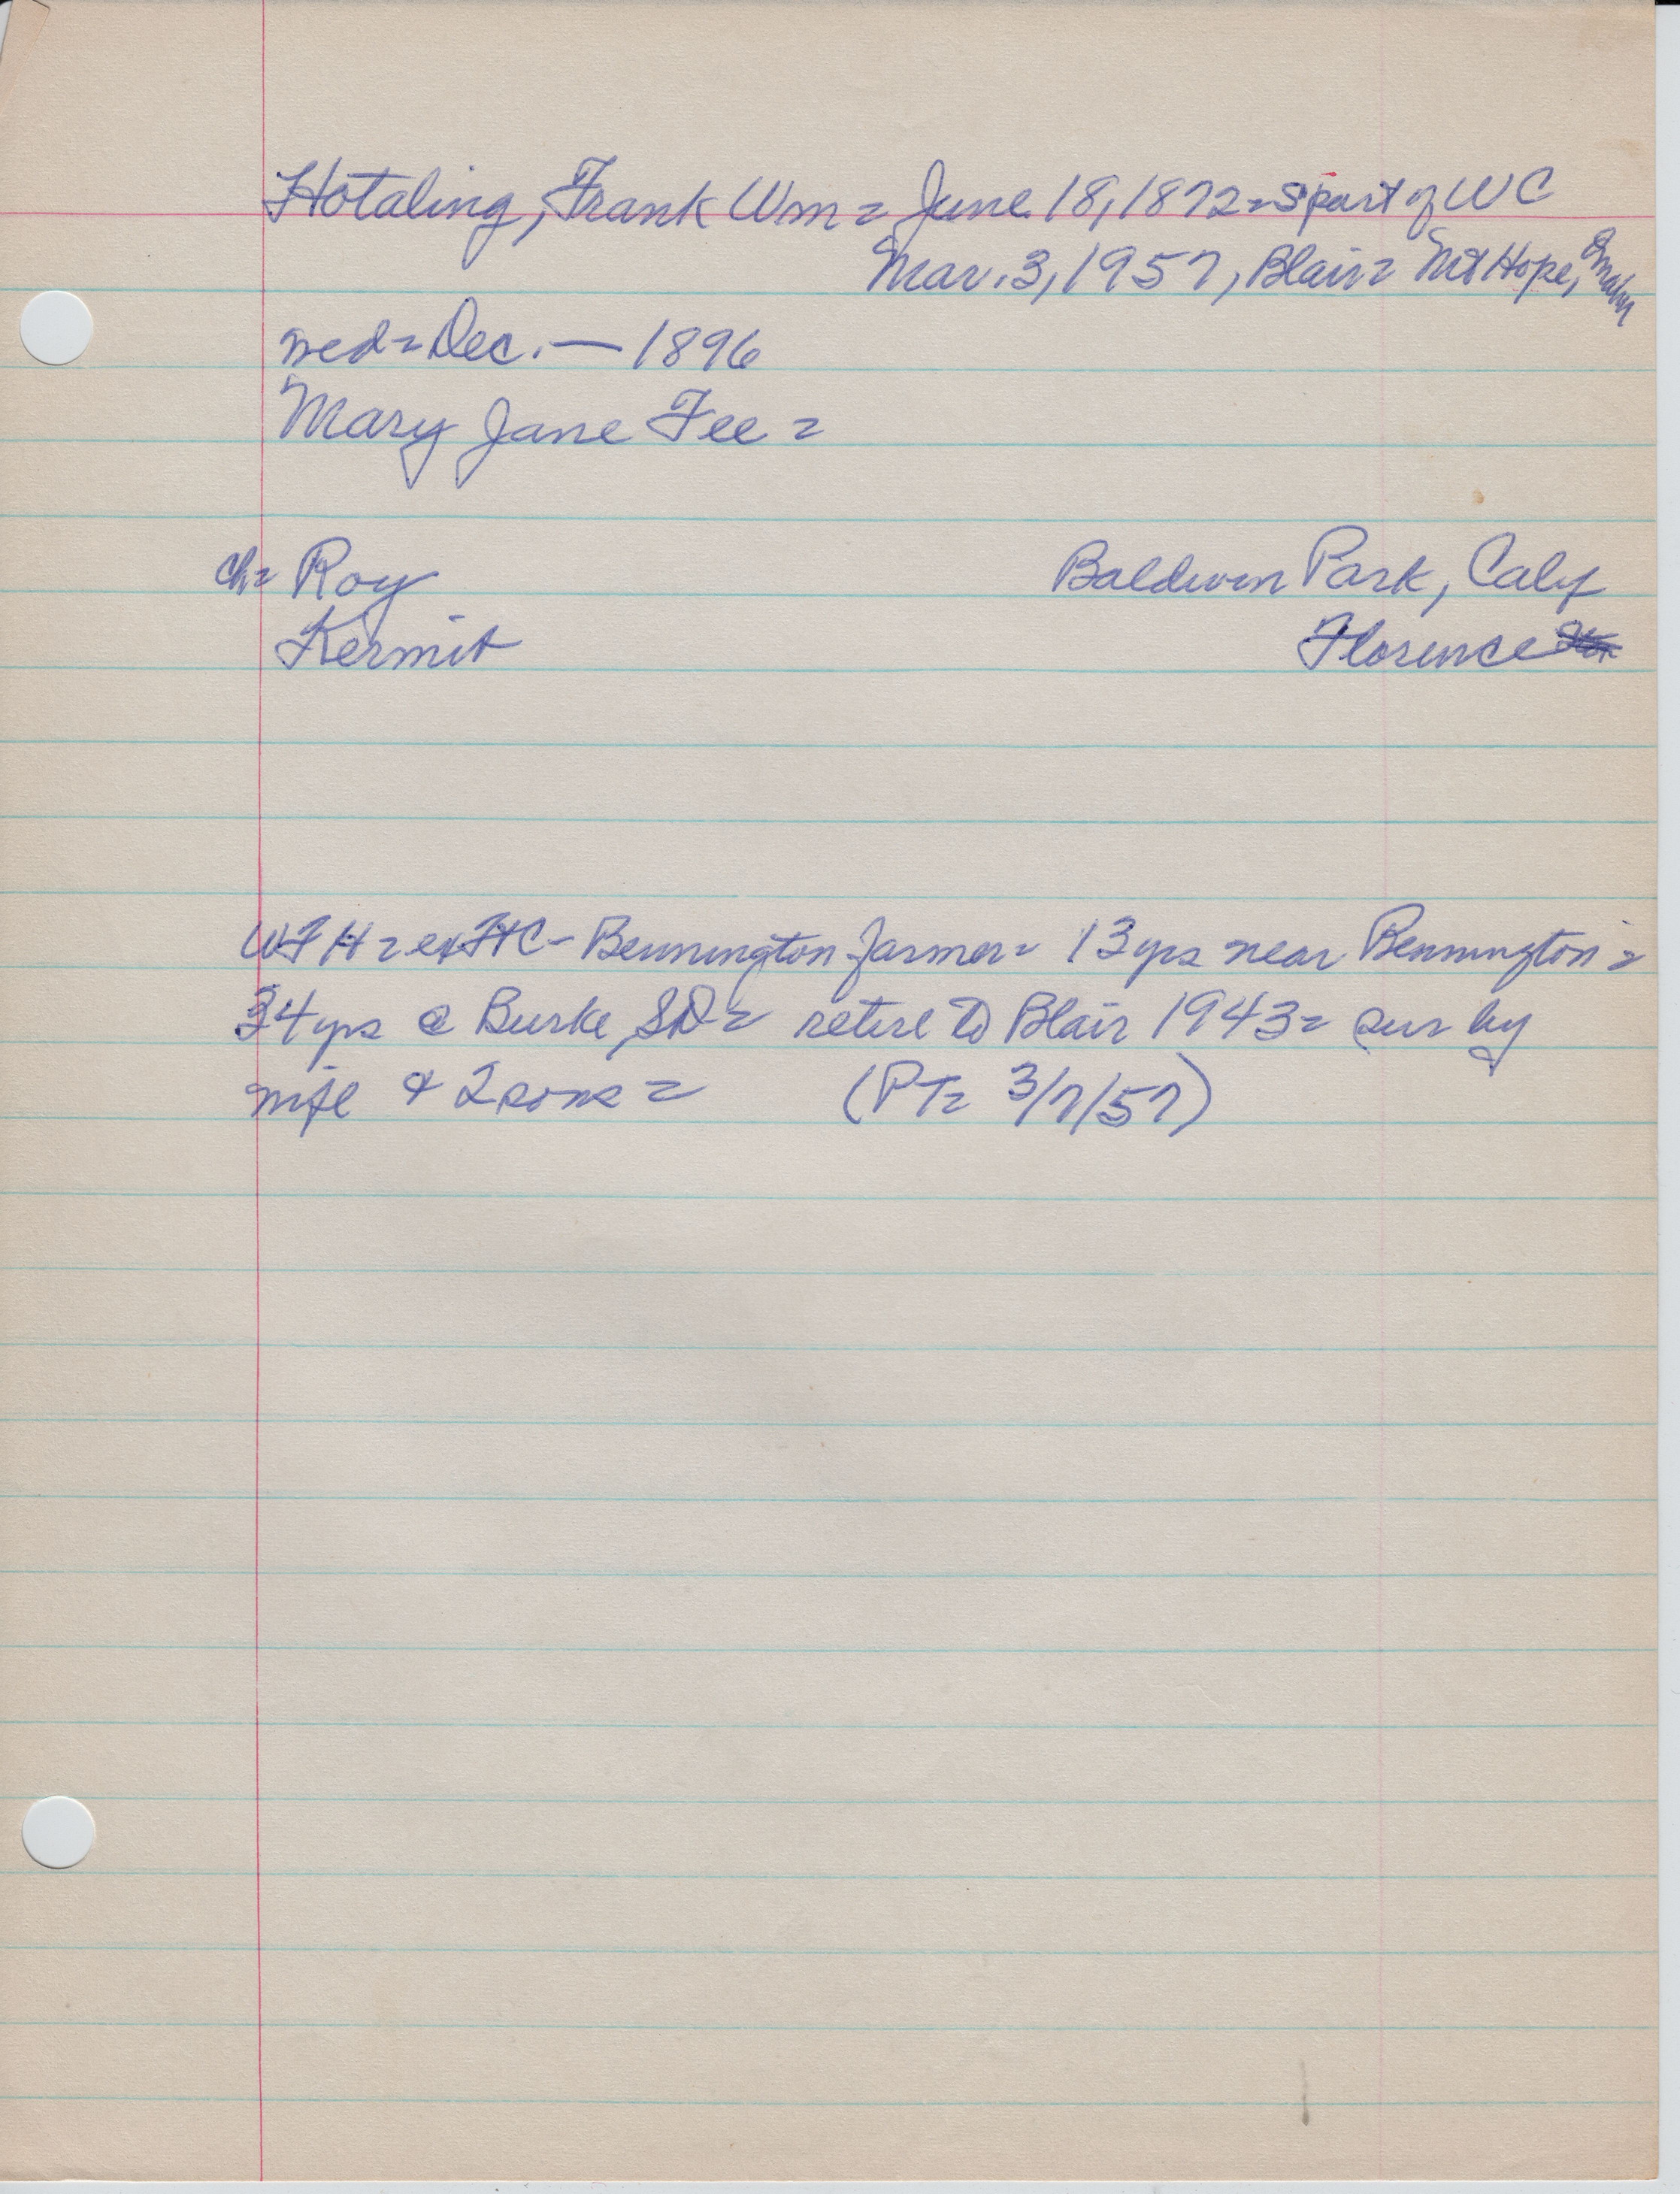 Hotaling, Frank Wm = June 18, 1872 = S part of WC
Mar. 3, 1957, Blair = Mt Hope, Omaha
med = Dec. — 1896
Mary Jane Fee =
ch = Roy Baldwin Park, Calif
Kermit Florence
WFH = ex FtC - Bennington farmer = 13 yrs near Bennington =
34 yrs @ Burke, SD = retire to Blair 1943 = sur by
wife & 2 sons = (PT = 3/7/57)